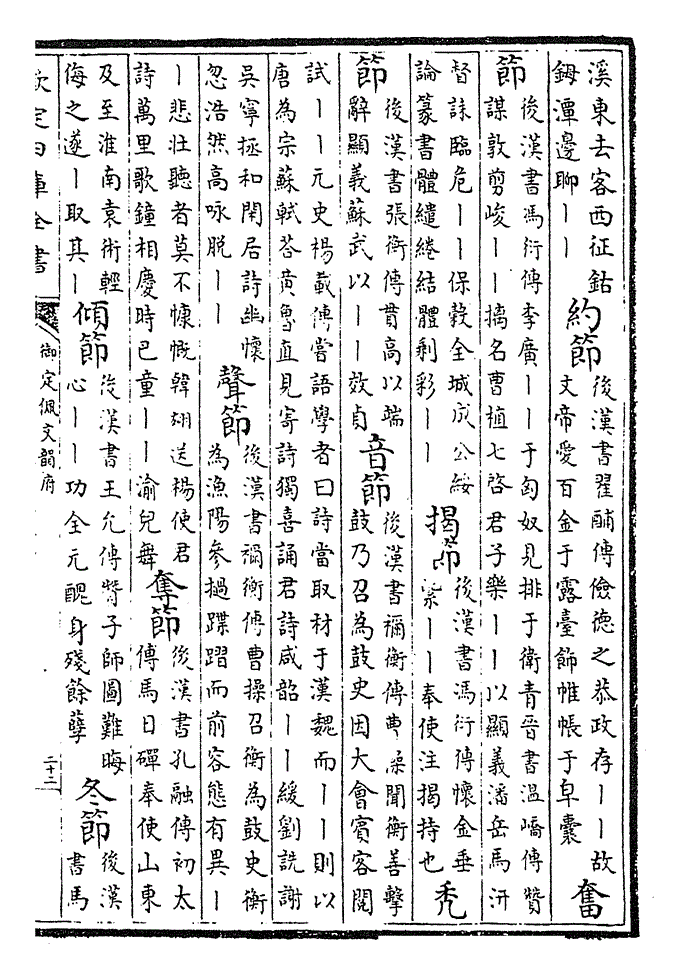 溪東去客西征鈷
鉧潭邊聊丨丨
約節
後漢書翟酺傳儉德之恭政存丨丨故
文帝愛百金于露臺飾帷帳于皁囊
奮
節
後漢書馮衍傳李廣丨丨于匈奴見排于衛青晉書溫嶠傳贊
謀敦剪峻丨丨摛名曹植七啓君子樂丨丨以顯義潘岳馬汧
督誄臨危丨丨保穀全城成公綏
論篆書體繾綣結體剩彩丨丨
揭節
後漢書馮衍傳懷金垂
紫丨丨奉使注揭持也
禿
節
後漢書張衡傳貫高以端
辭顯義蘇武以丨丨效貞
音節
後漢書禰衡傳曹操聞衡善擊
鼓乃召為鼓史因大會賓客閱
試丨丨元史楊載傳嘗語學者曰詩當取材于漢魏而丨丨則以
唐為宗蘇軾荅黃魯直見寄詩獨喜誦君詩咸韶丨丨緩劉詵謝
吳寧拯和閑居詩幽懷
忽浩然高咏脫丨丨
聲節
後漢書禰衡傳曹操召衡為鼓史衡
為漁陽參撾蹀而前容態有異丨
丨悲壯聽者莫不慷慨韓翃送楊使君
詩萬里歌鐘相慶時巴童丨丨渝兒舞
奪節
後漢書孔融傳初太
傅馬日磾奉使山東
及至淮南袁術輕
侮之遂丨取其丨
傾節
後漢書王允傳贊子師圖難晦
心丨丨功全元醜身殘餘孽
冬節
後漢
書馬
欽定四庫全書
御定佩文韻府
二十二